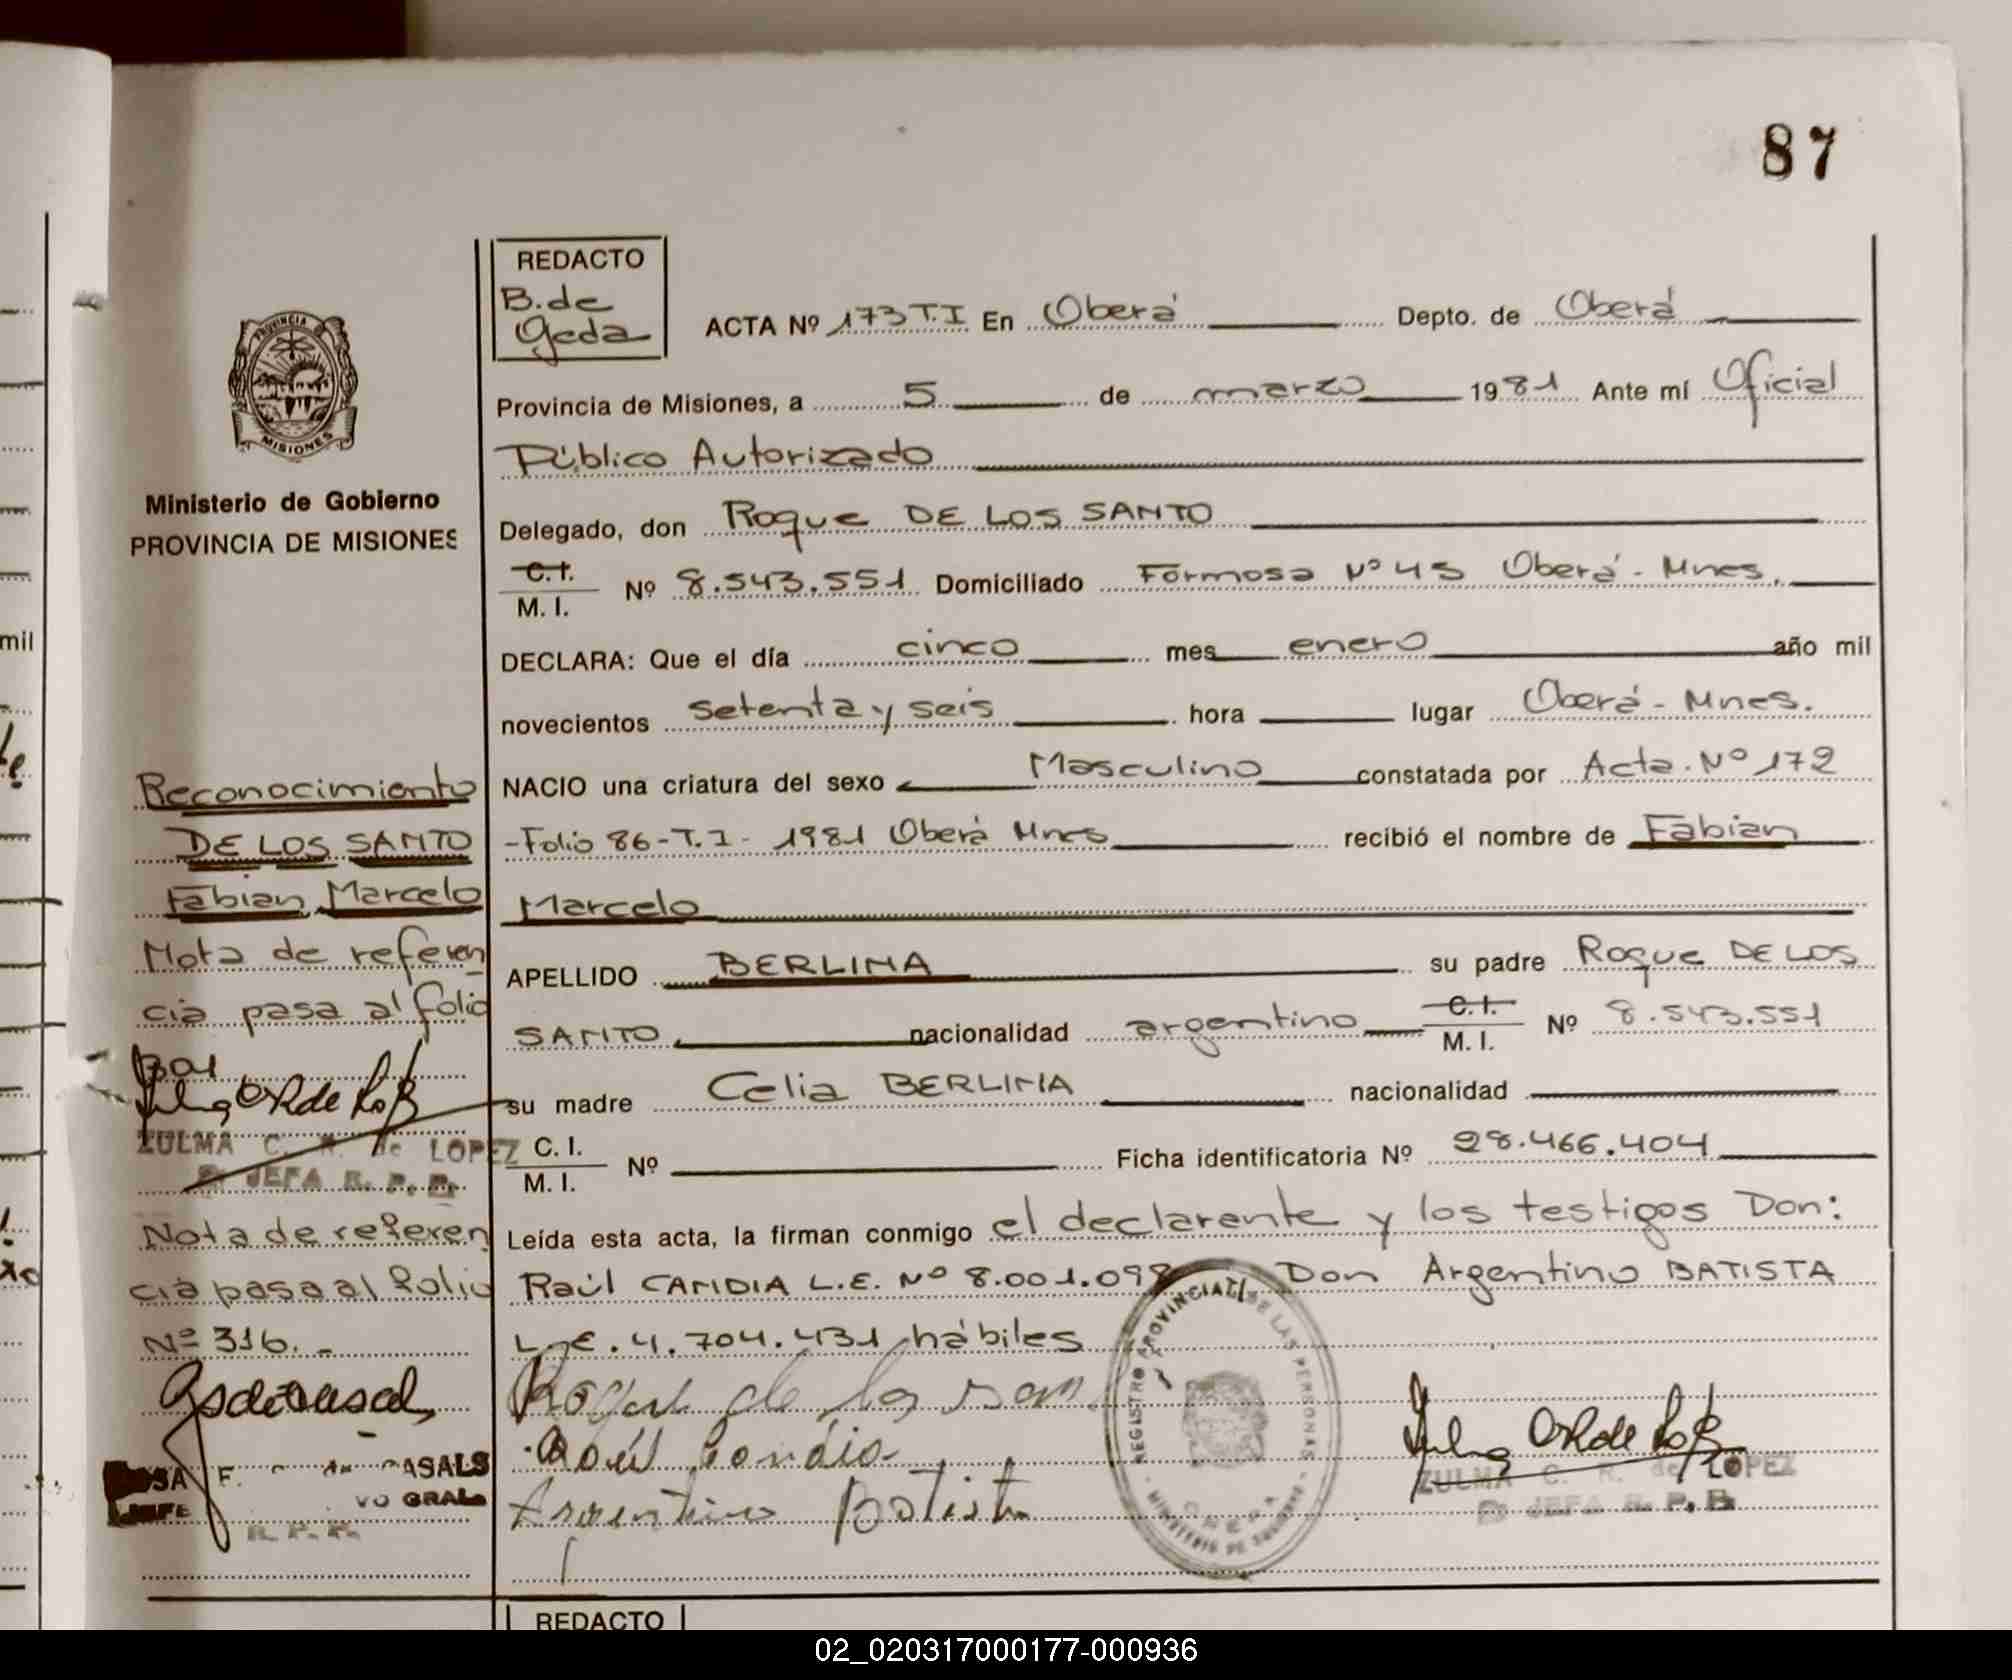 87
PROVINCIA
MISIONES
Ministerio de Gobierno
PROVINCIA DE MISIONES
Reconocimiento
DE LOS SANTO
Fabian Marcelo
Nota de referen
cia pasa al folio
ZULMA C. R. de LOPEZ
JEFA R. P. P.
Nota de referen
cia pasa al folio
Nº 316.-
CASALS
GRAL
R. P. P.
REDACTO
B. de
Geda
ACTA Nº 173 T.I En Oberá Depto. de Oberá
Provincia de Misiones, a 5 de marzo 1981 Ante mí Oficial
Público Autorizado
Delegado, don Roque DE LOS SANTO
C.I.
M. I. Nº 8.543.551 Domiciliado Formosa Nº 45 Oberá - Mnes.
DECLARA: Que el día cinco mes enero año mil
novecientos setenta y seis hora lugar Oberá - Mnes.
NACIO una criatura del sexo Masculino constatada por Acta. Nº 172
-Folio 86-T.I- 1981 Oberá Mnes recibió el nombre de Fabian
Marcelo
APELLIDO BERLINA su padre Roque DE LOS
SANTO nacionalidad argentino C.I. M. I. Nº 8.543.551
su madre Celia BERLINA nacionalidad
C. I.
M. I. Nº Ficha identificatoria Nº 28.466.404
Leída esta acta, la firman conmigo el declarente y los testigos Don:
Raúl CANDIA L.E. Nº 8.001.098 Don Argentino BATISTA
L.E. 4.704.431 hábiles
Roque de los san
Raúl Candia
Argentino Batista
REGISTRO PROVINCIAL DE LAS PERSONAS
OBERA
ZULMA C. R. de LOPEZ
JEFA R. P. P.
REDACTO
mil
02_020317000177-000936